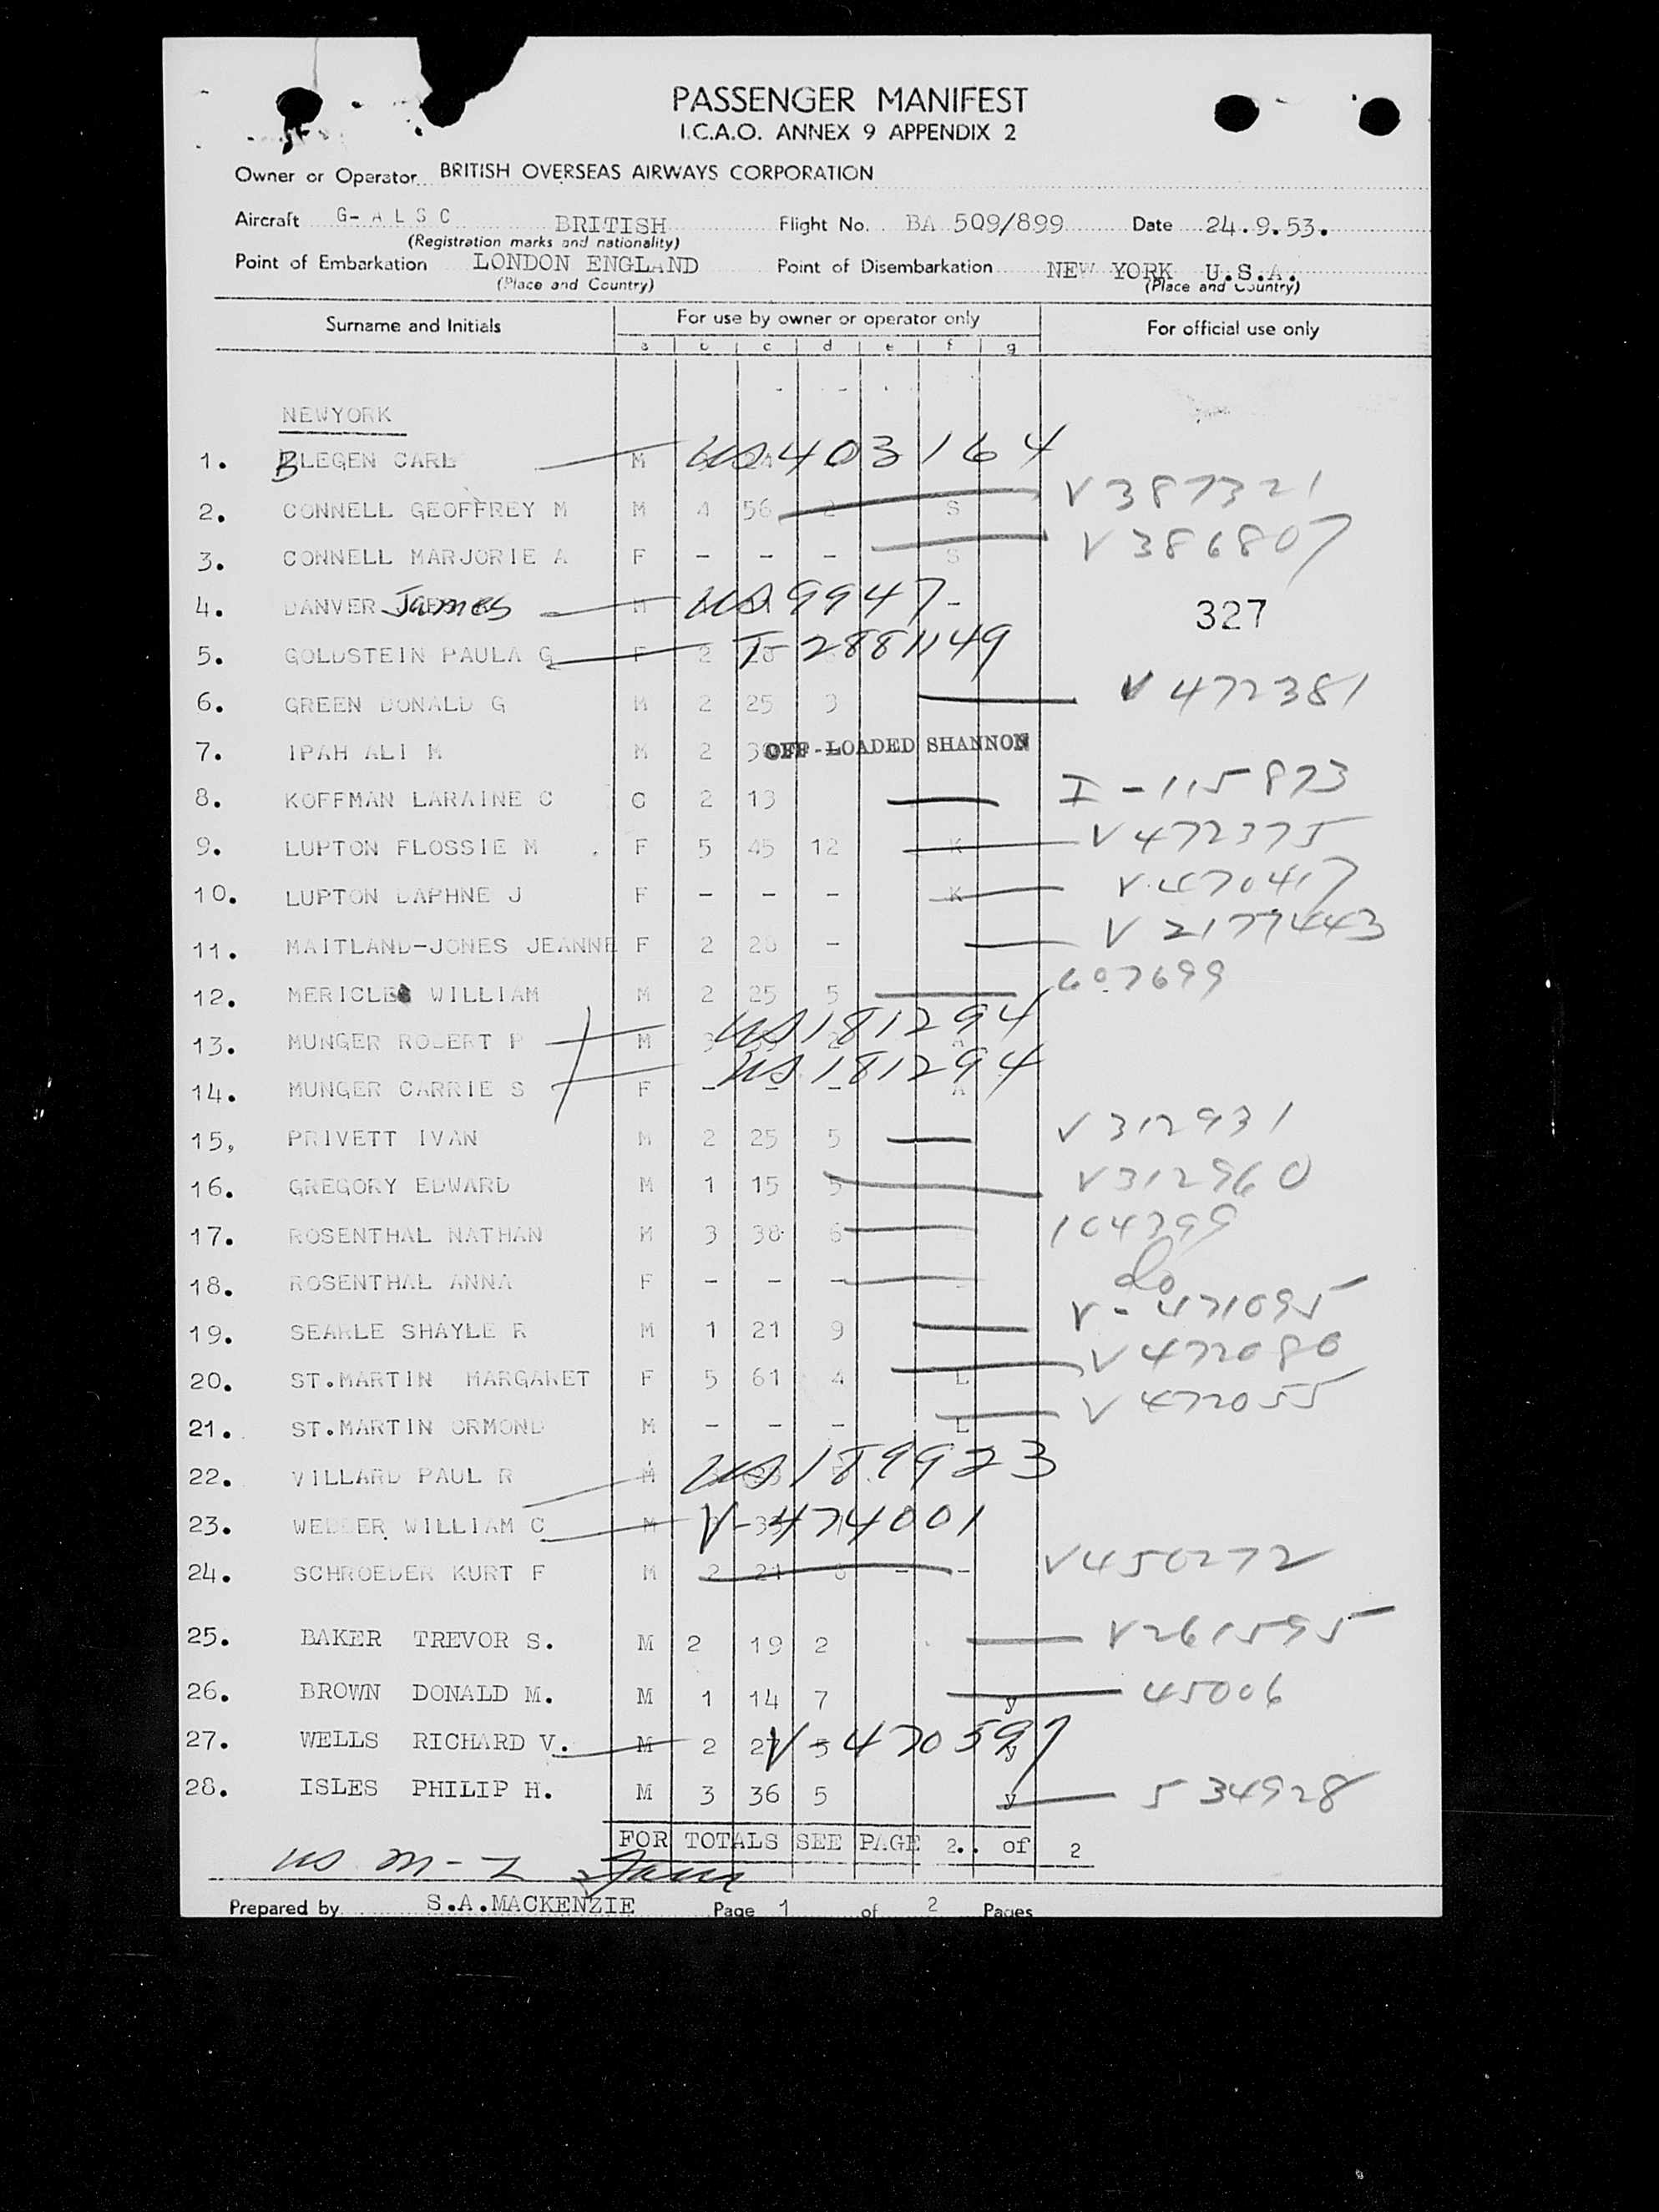 PASSENGER MANIFEST
I.C.A.O. ANNEX 9 APPENDIX 2
Owner or Operator BRITISH OVERSEAS AIRWAYS CORPORATION
Aircraft G-ALSC BRITISH Flight No. BA 509/899 Date 24.9.53.
(Registration marks and nationality)
Point of Embarkation LONDON ENGLAND Point of Disembarkation NEW YORK U.S.A.
(Place and Country) (Place and Country)
Surname and Initials For use by owner or operator only For official use only
a b c d e f g
NEWYORK
1. BLEGEN CARL M US 403164
2. CONNELL GEOFFREY M M 4 56 2 S V 387321
3. CONNELL MARJORIE A F - - - S V 386807
4. DANVER James M US 9947 - 327
5. GOLDSTEIN PAULA G F 2 I-2881149
6. GREEN DONALD G M 2 25 3 V 472381
7. IPAH ALI M M 2 OFF-LOADED SHANNON
8. KOFFMAN LARAINE C C 2 13 I-115873
9. LUPTON FLOSSIE M F 5 45 12 K V 472375
10. LUPTON DAPHNE J F - - - K V 470417
11. MAITLAND-JONES JEANNE F 2 28 - V 2177443
12. MERICLE WILLIAM M 2 25 5 607699
13. MUNGER ROBERT P M US 181294 A
14. MUNGER CARRIE S F - - - US 181294 A
15, PRIVETT IVAN M 2 25 5 V 312931
16. GREGORY EDWARD M 1 15 5 V 312960
17. ROSENTHAL NATHAN M 3 38 6 104399
18. ROSENTHAL ANNA F - - - do
19. SEARLE SHAYLE R M 1 21 9 V-471095
20. ST.MARTIN MARGARET F 5 61 4 L V 472080
21. ST.MARTIN ORMOND M - - - L V 472055
22. VILLARD PAUL R M US 189923
23. WEDDER WILLIAM C M V-474001
24. SCHROEDER KURT F M 2 21 8 - - V 450272
25. BAKER TREVOR S. M 2 19 2 V 261595
26. BROWN DONALD M. M 1 14 7 y 45006
27. WELLS RICHARD V. M 2 27 5 V-470597 y
28. ISLES PHILIP H. M 3 36 5 y 534928
FOR TOTALS SEE PAGE 2.. of 2
US M-
Prepared by S.A.MACKENZIE Page 1 of 2 Pages